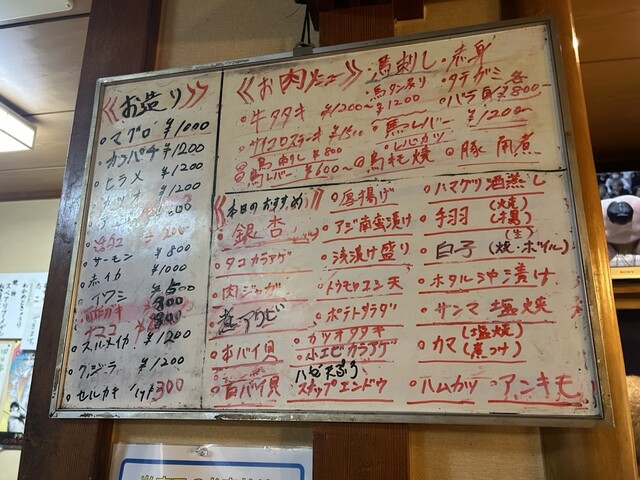 《お造り》
。マグロ ¥1000
。カンパチ ¥1200
。ヒラメ ¥1200
。カツオ ¥1200
。サーモン ¥800
。赤イカ ¥1000
。イワシ
。ナマコ
。スルメイカ ¥1200
。クジラ ¥1200
。セルガキ 1ケ¥300
《お肉メニュー》
。馬刺し。赤身
タテガミ
バラ
。牛タタキ ¥1200〜
。馬タン炙り ¥1200
。サイコロステーキ ¥1500
。馬レバー ¥1200〜
。レバカツ
。鳥刺し ¥800
。鳥レバー ¥600〜
。鳥モモ焼
。豚角煮
《本日のおすすめ》
。銀杏
。タコカラアゲ
。肉ジャガ
。煮アワビ
。本バイ貝
。白バイ貝
。厚揚げ
。アジ南蛮漬け
。浅漬け盛り
。トウモロコシ天
。ポテトサラダ
。カツオタタキ
。小エビカラアゲ
スナップエンドウ
。ハマグリ酒蒸し
。手羽(焼)(揚)
。白子(生)(焼・ボイル)
。ホタル沖漬け
。サンマ塩焼
。カマ(塩焼)(煮つけ)
。ハムカツ
。アンキモ
SONY